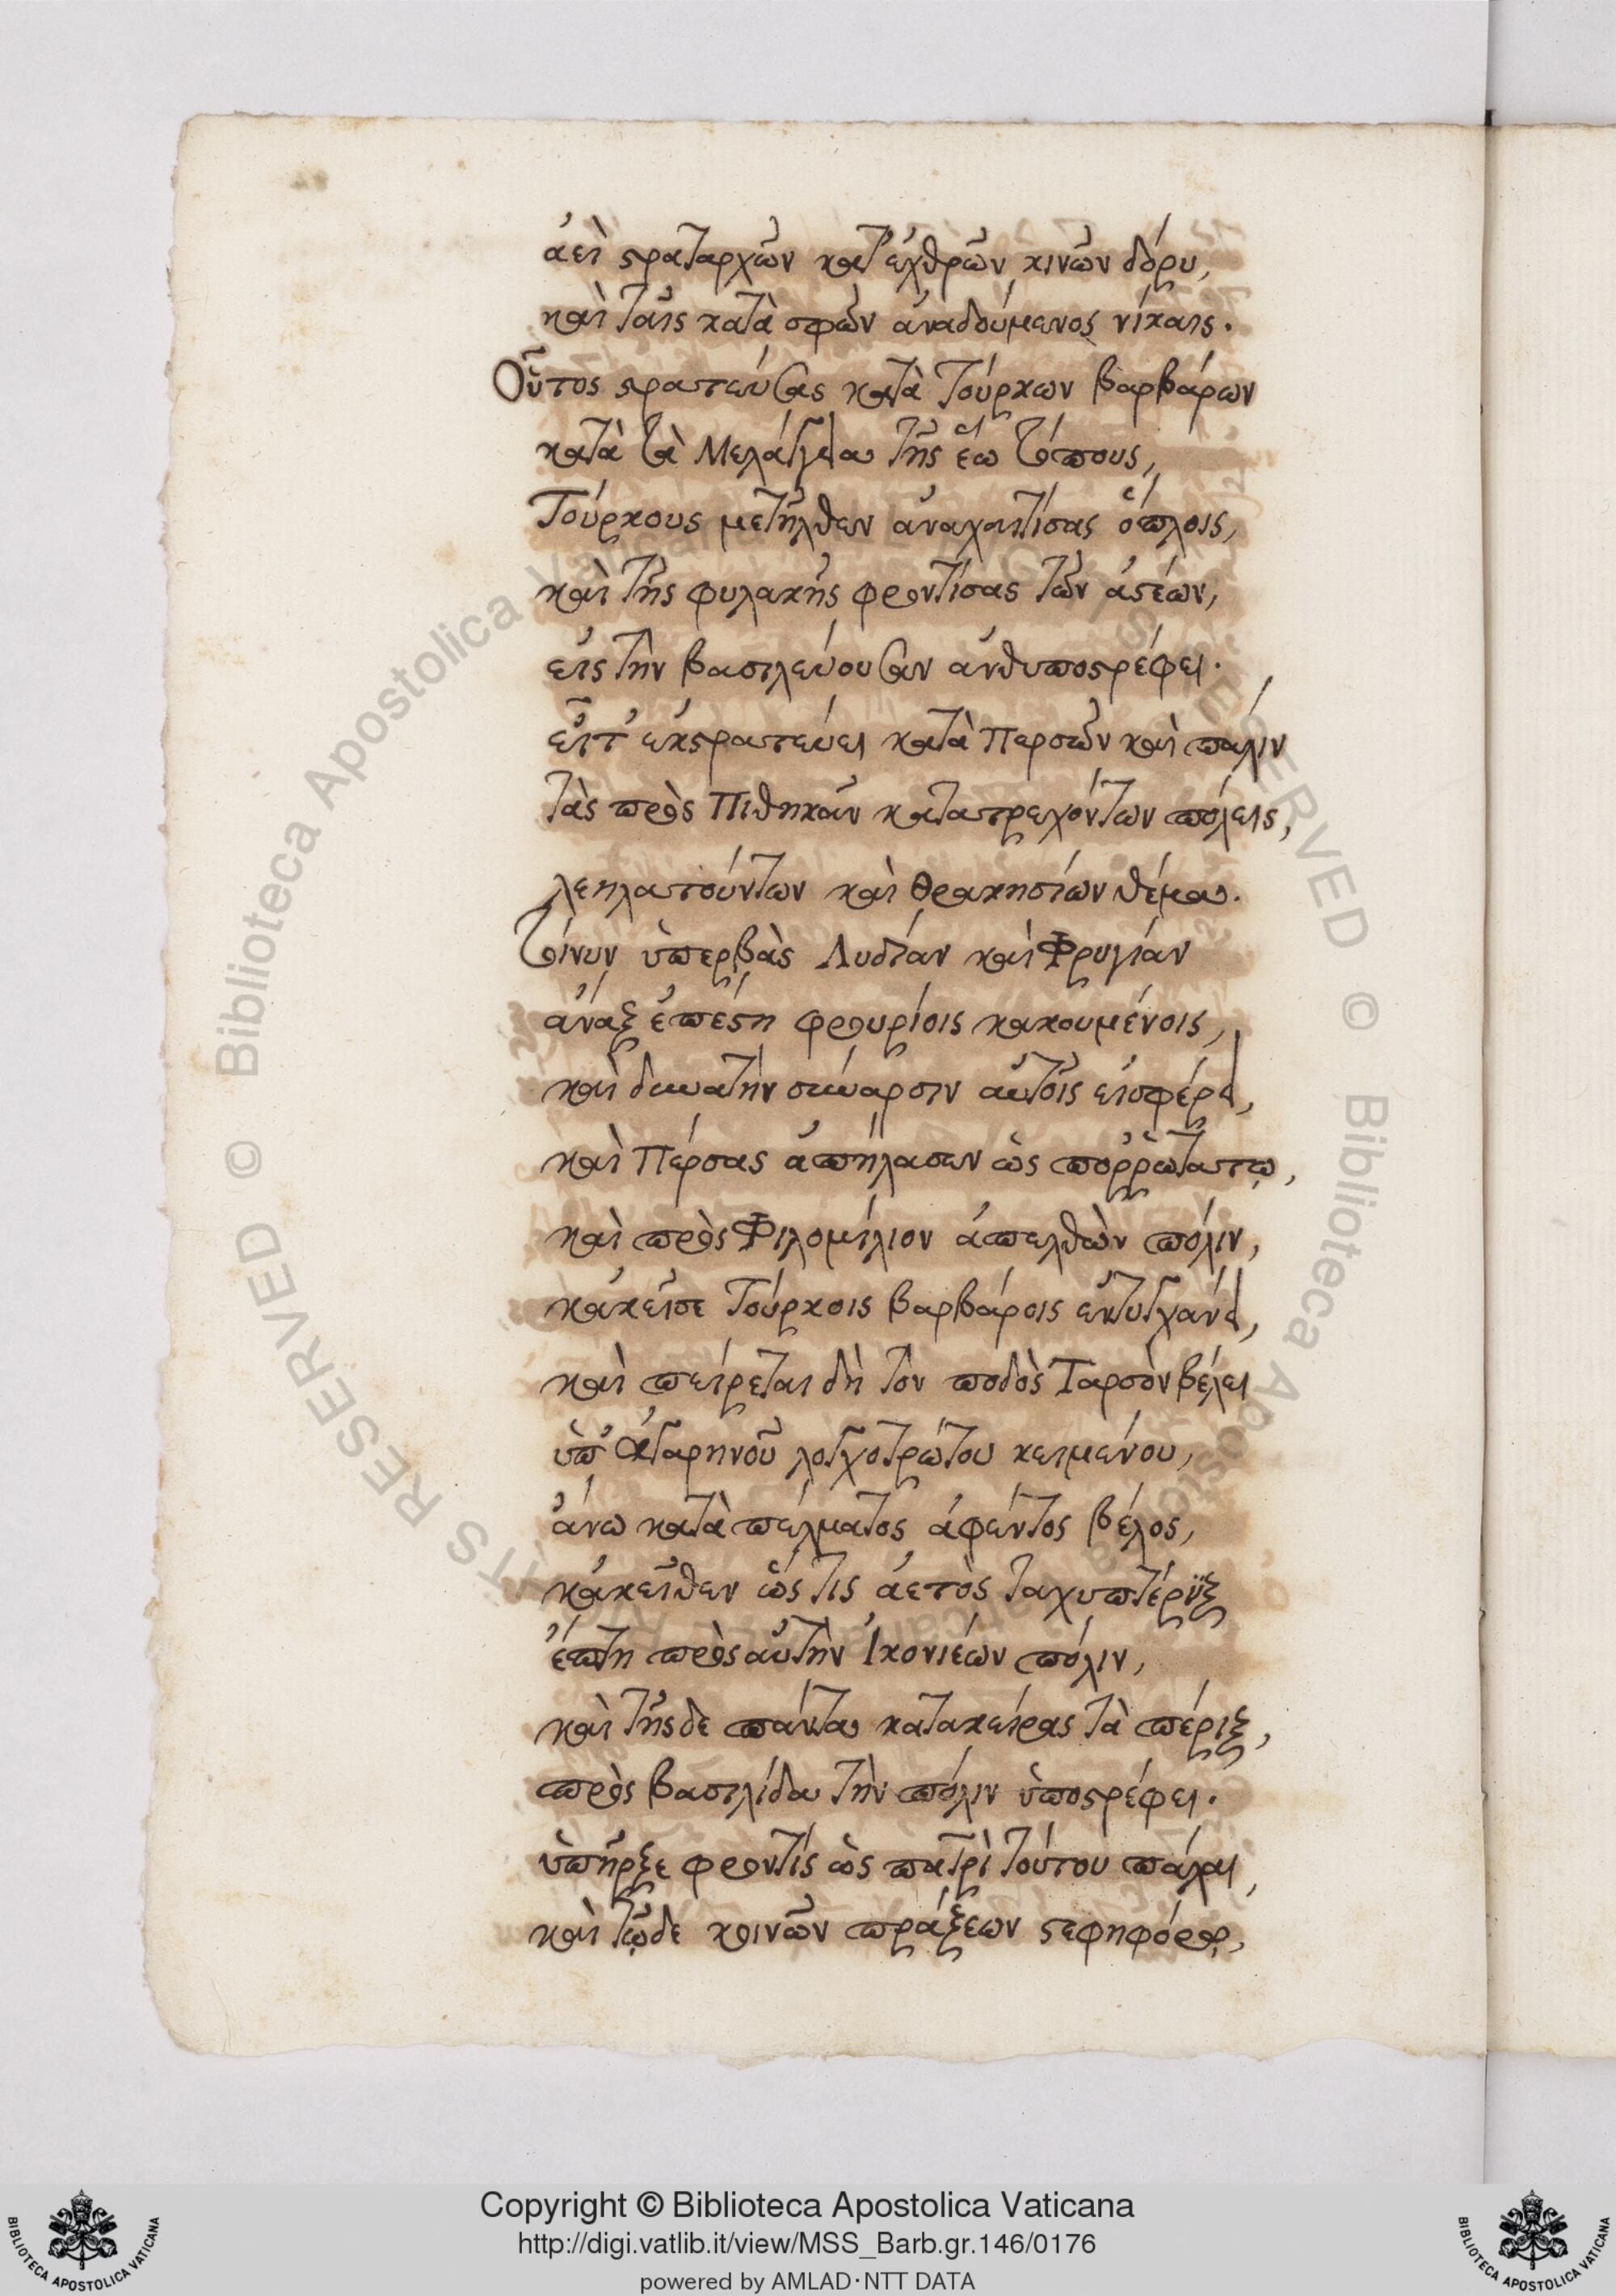 ἀεὶ στραταρχῶν κατ' ἐχθρῶν κινῶν δόρυ,
καὶ ταῖς κατὰ σφῶν ἀναδούμενος νίκαις.
Οὗτος στρατεύσας κατὰ Τούρκων βαρβάρων
κατὰ τὰ Μελάγγεια τῆς ἕω τόπους,
Τούρκους μετῆλθεν ἀναχαιτίσας ὅπλοις,
καὶ τῆς φυλακῆς φροντίσας τῶν ἀστέων,
εἰς τὴν βασιλεύουσαν ἀνθυποστρέφει.
εἶτ' ἐκστρατεύει κατὰ Περσῶν καὶ πάλιν
τὰς πρὸς Πιθηκᾶν κατατρεχόντων πόλεις,
λεηλατούντων καὶ Θρακησίων θέμα.
τοίνυν ὑπερβὰς Λυδίαν καὶ Φρυγίαν
ἄναξ ἐπέστη φρουρίοις κακουμένοις,
καὶ δυνατὴν σύναρσιν αὐτοῖς εἰσφέρει,
καὶ Πέρσας ἀπήλασεν ὡς πορρωτάτω,
καὶ πρὸς Φιλομίλιον ἀπελθὼν πόλιν,
κἀκεῖσε Τούρκοις βαρβάροις ἐντυγχάνει,
καὶ πείρεται δὴ τὸν ποδὸς Ταρσὸν βέλει
ὑπ' Ἀγαρηνοῦ λογχοτρώτου κειμένου,
ἄνω κατὰ πέλματος ἀφέντος βέλος,
κἀκεῖθεν ὥς τις ἀετὸς ταχυπτέρυξ
ἔπτη πρὸς αὐτὴν Ἰκονιέων πόλιν,
καὶ τῆσδε πάντα κατακείρας τὰ πέριξ,
πρὸς βασιλίδα τὴν πόλιν ὑποστρέφει.
ὑπῆρξε φροντὶς ὡς πατρὶ τούτου πάλαι,
καὶ τῷδε κοινῶν πράξεων στεφηφόρῳ,
© Biblioteca Apostolica Vaticana
Copyright © Biblioteca Apostolica Vaticana
http://digi.vatlib.it/view/MSS_Barb.gr.146/0176
powered by AMLAD·NTT DATA
BIBLIOTECA APOSTOLICA VATICANA
BIBLIOTECA APOSTOLICA VATICANA